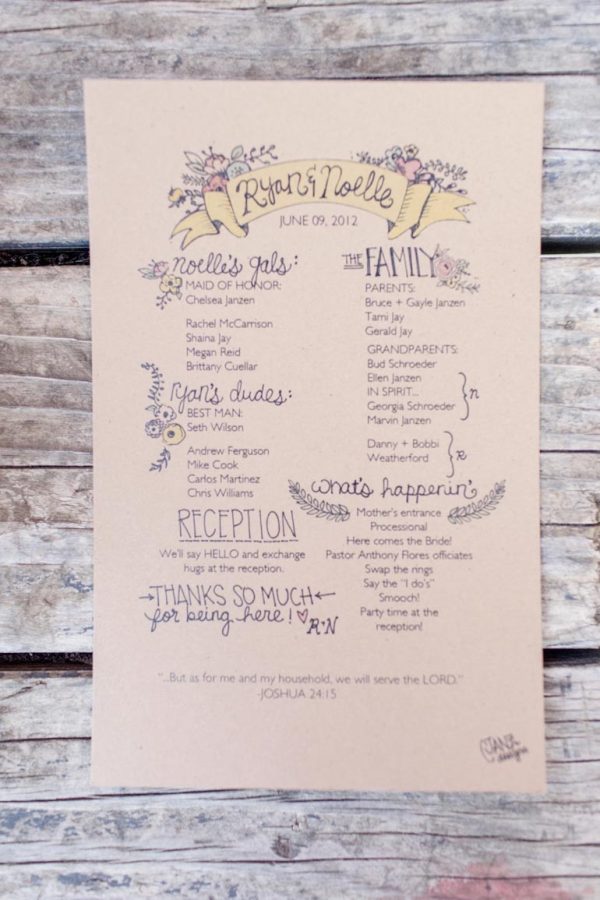 Ryan & Noelle
JUNE 09, 2012
noelle's gals:
MAID OF HONOR:
Chelsea Janzen
Rachel McCarrison
Shaina Jay
Megan Reid
Brittany Cuellar
ryan's dudes:
BEST MAN:
Seth Wilson
Andrew Ferguson
Mike Cook
Carlos Martinez
Chris Williams
RECEPTION
We'll say HELLO and exchange
hugs at the reception.
THANKS SO MUCH
for being here! R+N
THE FAMILY
PARENTS:
Bruce + Gayle Janzen
Tami Jay
Gerald Jay
GRANDPARENTS:
Bud Schroeder
Ellen Janzen
IN SPIRIT...
Georgia Schroeder
Marvin Janzen
n
Danny + Bobbi
Weatherford
R
what's happenin'
Mother's entrance
Processional
Here comes the Bride!
Pastor Anthony Flores officiates
Swap the rings
Say the "I do's"
Smooch!
Party time at the
reception!
"...But as for me and my household, we will serve the LORD."
-JOSHUA 24:15
designs